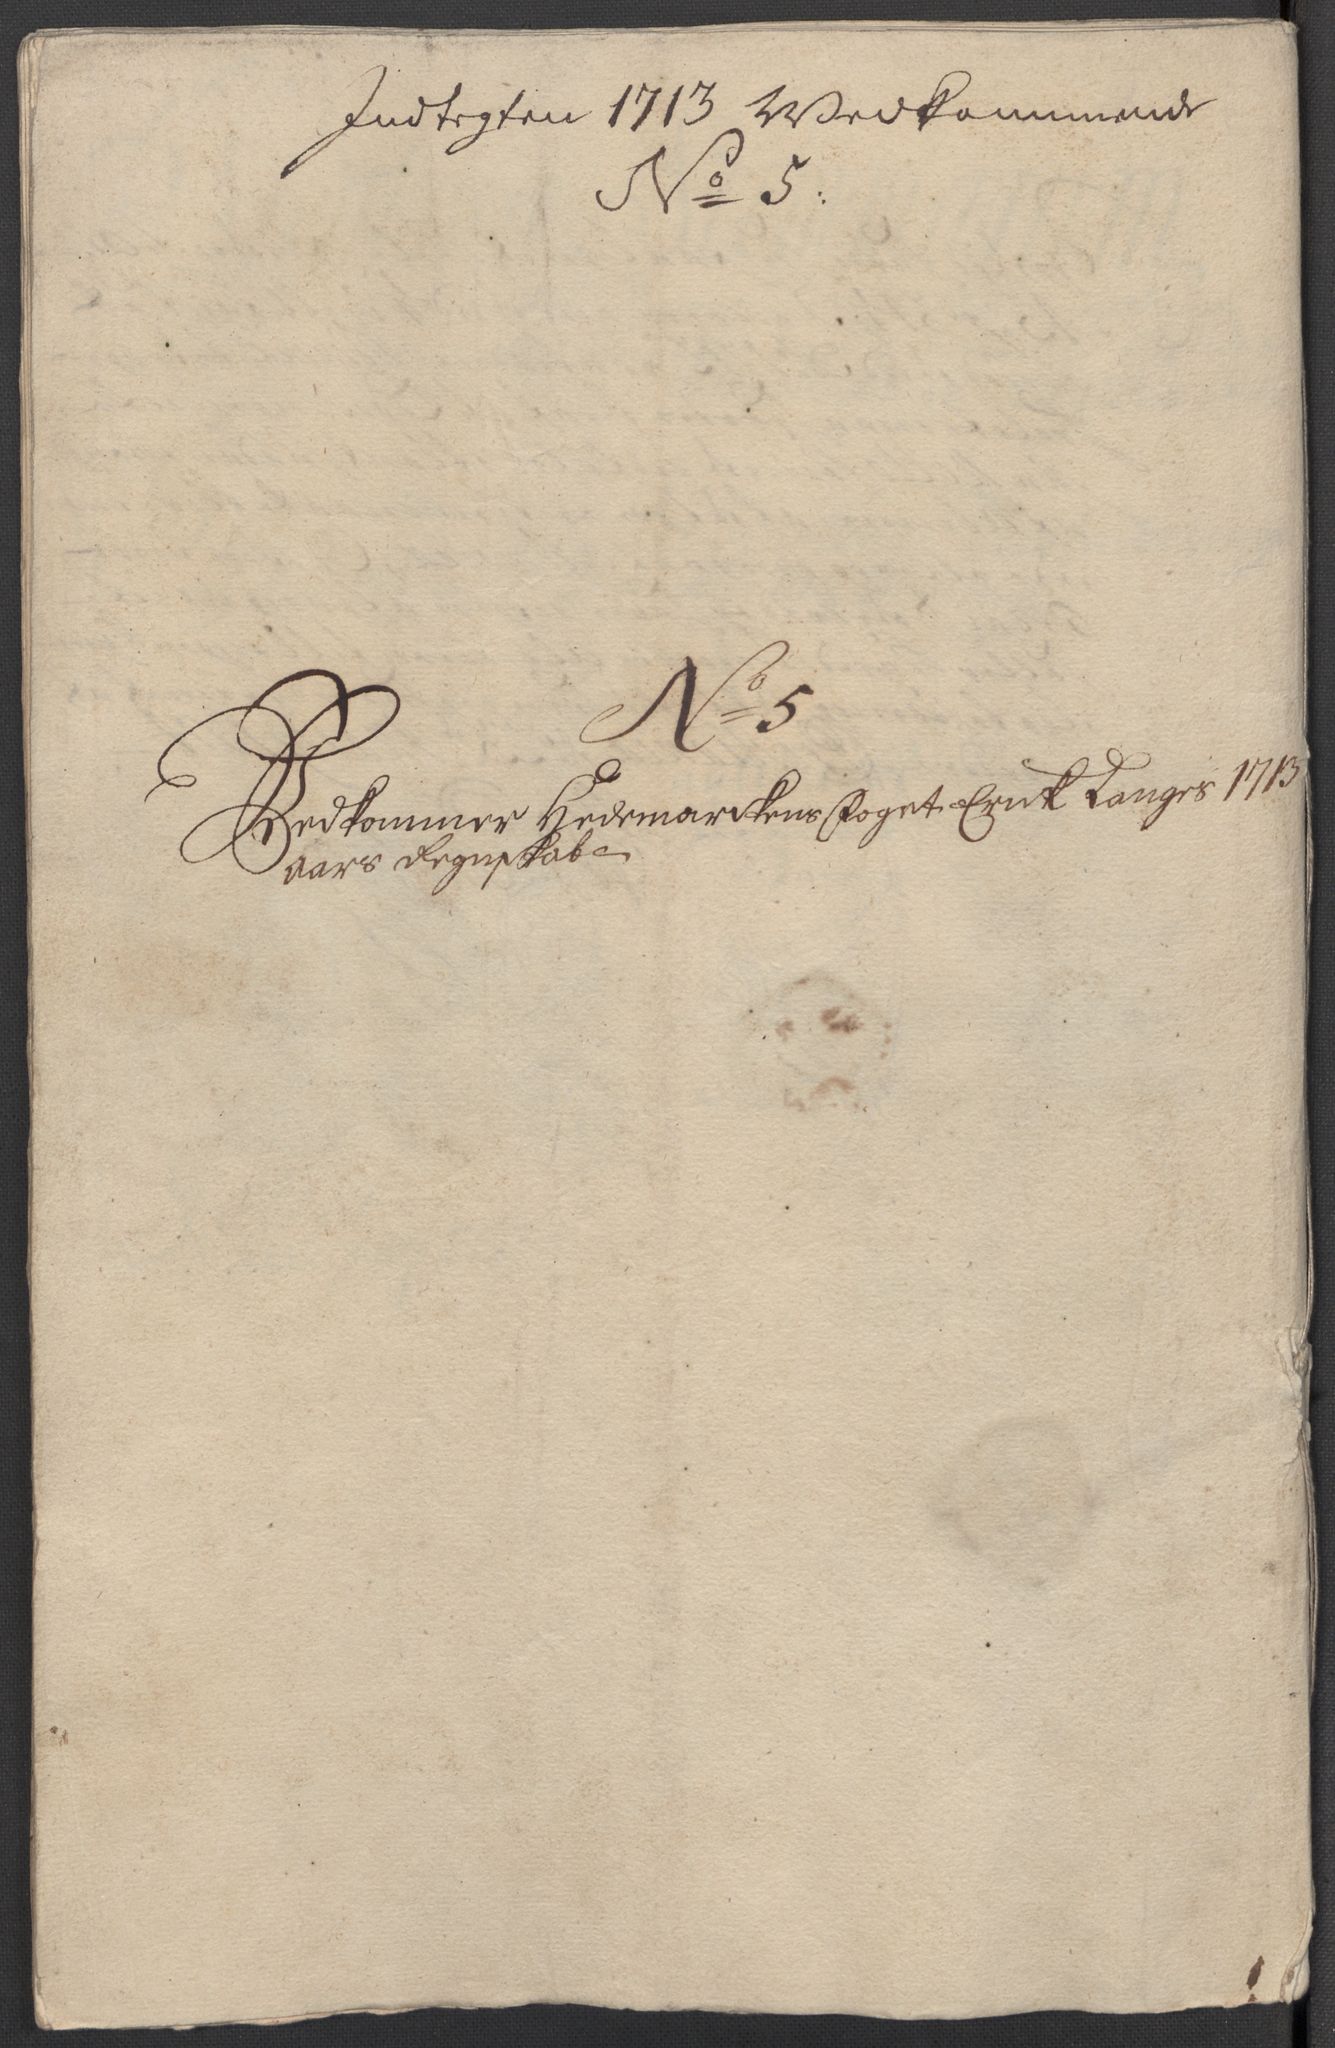 Indtegten 1713 Vedkommende
No 5:
No 5
Vedkommer Hedemarckens Foget Erick Langes 1713
aars Regnskab